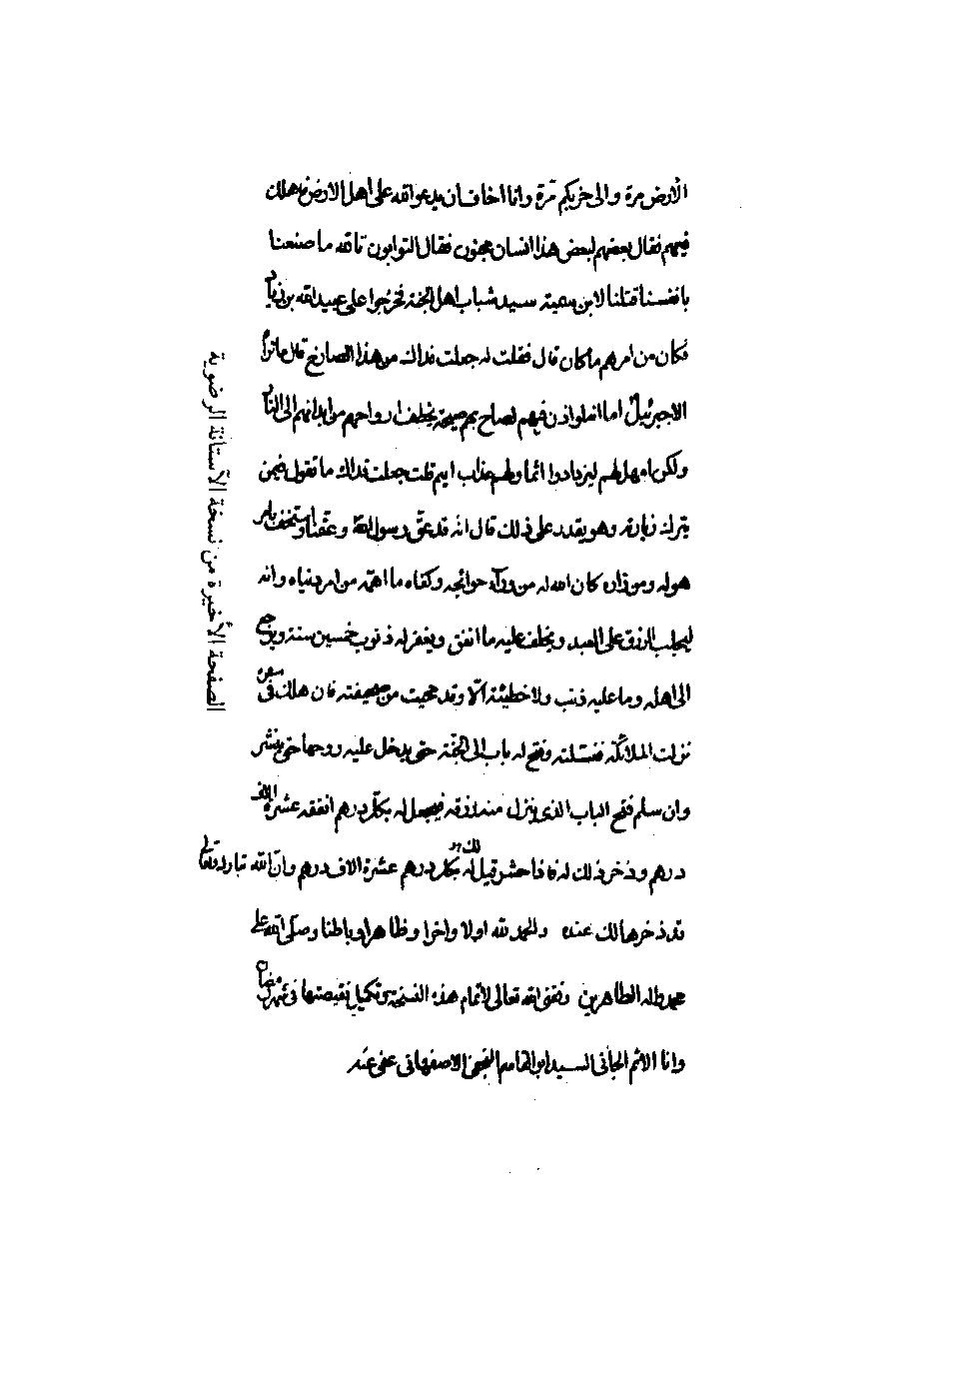 الأرض مرة والى حزبكم مرة وانا اخاف ان يدعو الله على اهل الارض فيهلك
فيهم فقال بعضهم لبعض هذا انسان مجنون فقال التوابون تالله ما صنعنا
بانفسنا قتلنا لابن سمية سيد شباب اهل الجنة فخرجوا على عبيد الله بن زياد
فكان من امرهم ما كان قال فقلت له جعلت فداك من هذا الصارخ قال ما نراه
الا جبرئيل اما انه لو اذن فيهم لصاح بهم صيحة يخطف ارواحهم من ابدانهم الى النار
ولكن امهل لهم ليزدادوا اثما ولهم عذاب اليم قلت جعلت فداك ما تقول فيمن
يترك زيارته وهو يقدر على ذلك قال انه قد عق رسول الله وعقنا واستخف بامر
هو له ومن زاره كان الله له من وراء حوائجه وكفاه ما اهمه من امر دنياه وانه
ليجلب الرزق على العبد ويخلف عليه ما انفق ويغفر له ذنوب خمسين سنة ويرجع
الى اهله وما عليه ذنب ولا خطيئة الّا وقد محيت من صحيفته فان هلك في سفره
نزلت الملائكة فغسلته وفتح له باب الى الجنة حتى يدخل عليه روحها حتى ينشر
وان سلم فتح الباب الذي ينزل منه رزقه فيجعل له بكل درهم انفقه عشرة الاف
درهم وذخر ذلك له فاذا حشر قيل له لك بكل درهم عشرة الاف درهم وانّ الله تبارك وتعالى
قد ذخرها لك عنده والحمد لله اولا واخرا وظاهرا وباطنا وصلى الله على
محمد واله الطاهرين وفقني الله تعالى لاتمام هذه النسخة وتكميل نقيصتها في شهر رمضان
وانا الاثم الجاني السيد ابو القاسم الاصفهاني عفى عنه
الصفحة الأخيرة من نسخة الآستانة الرضوية